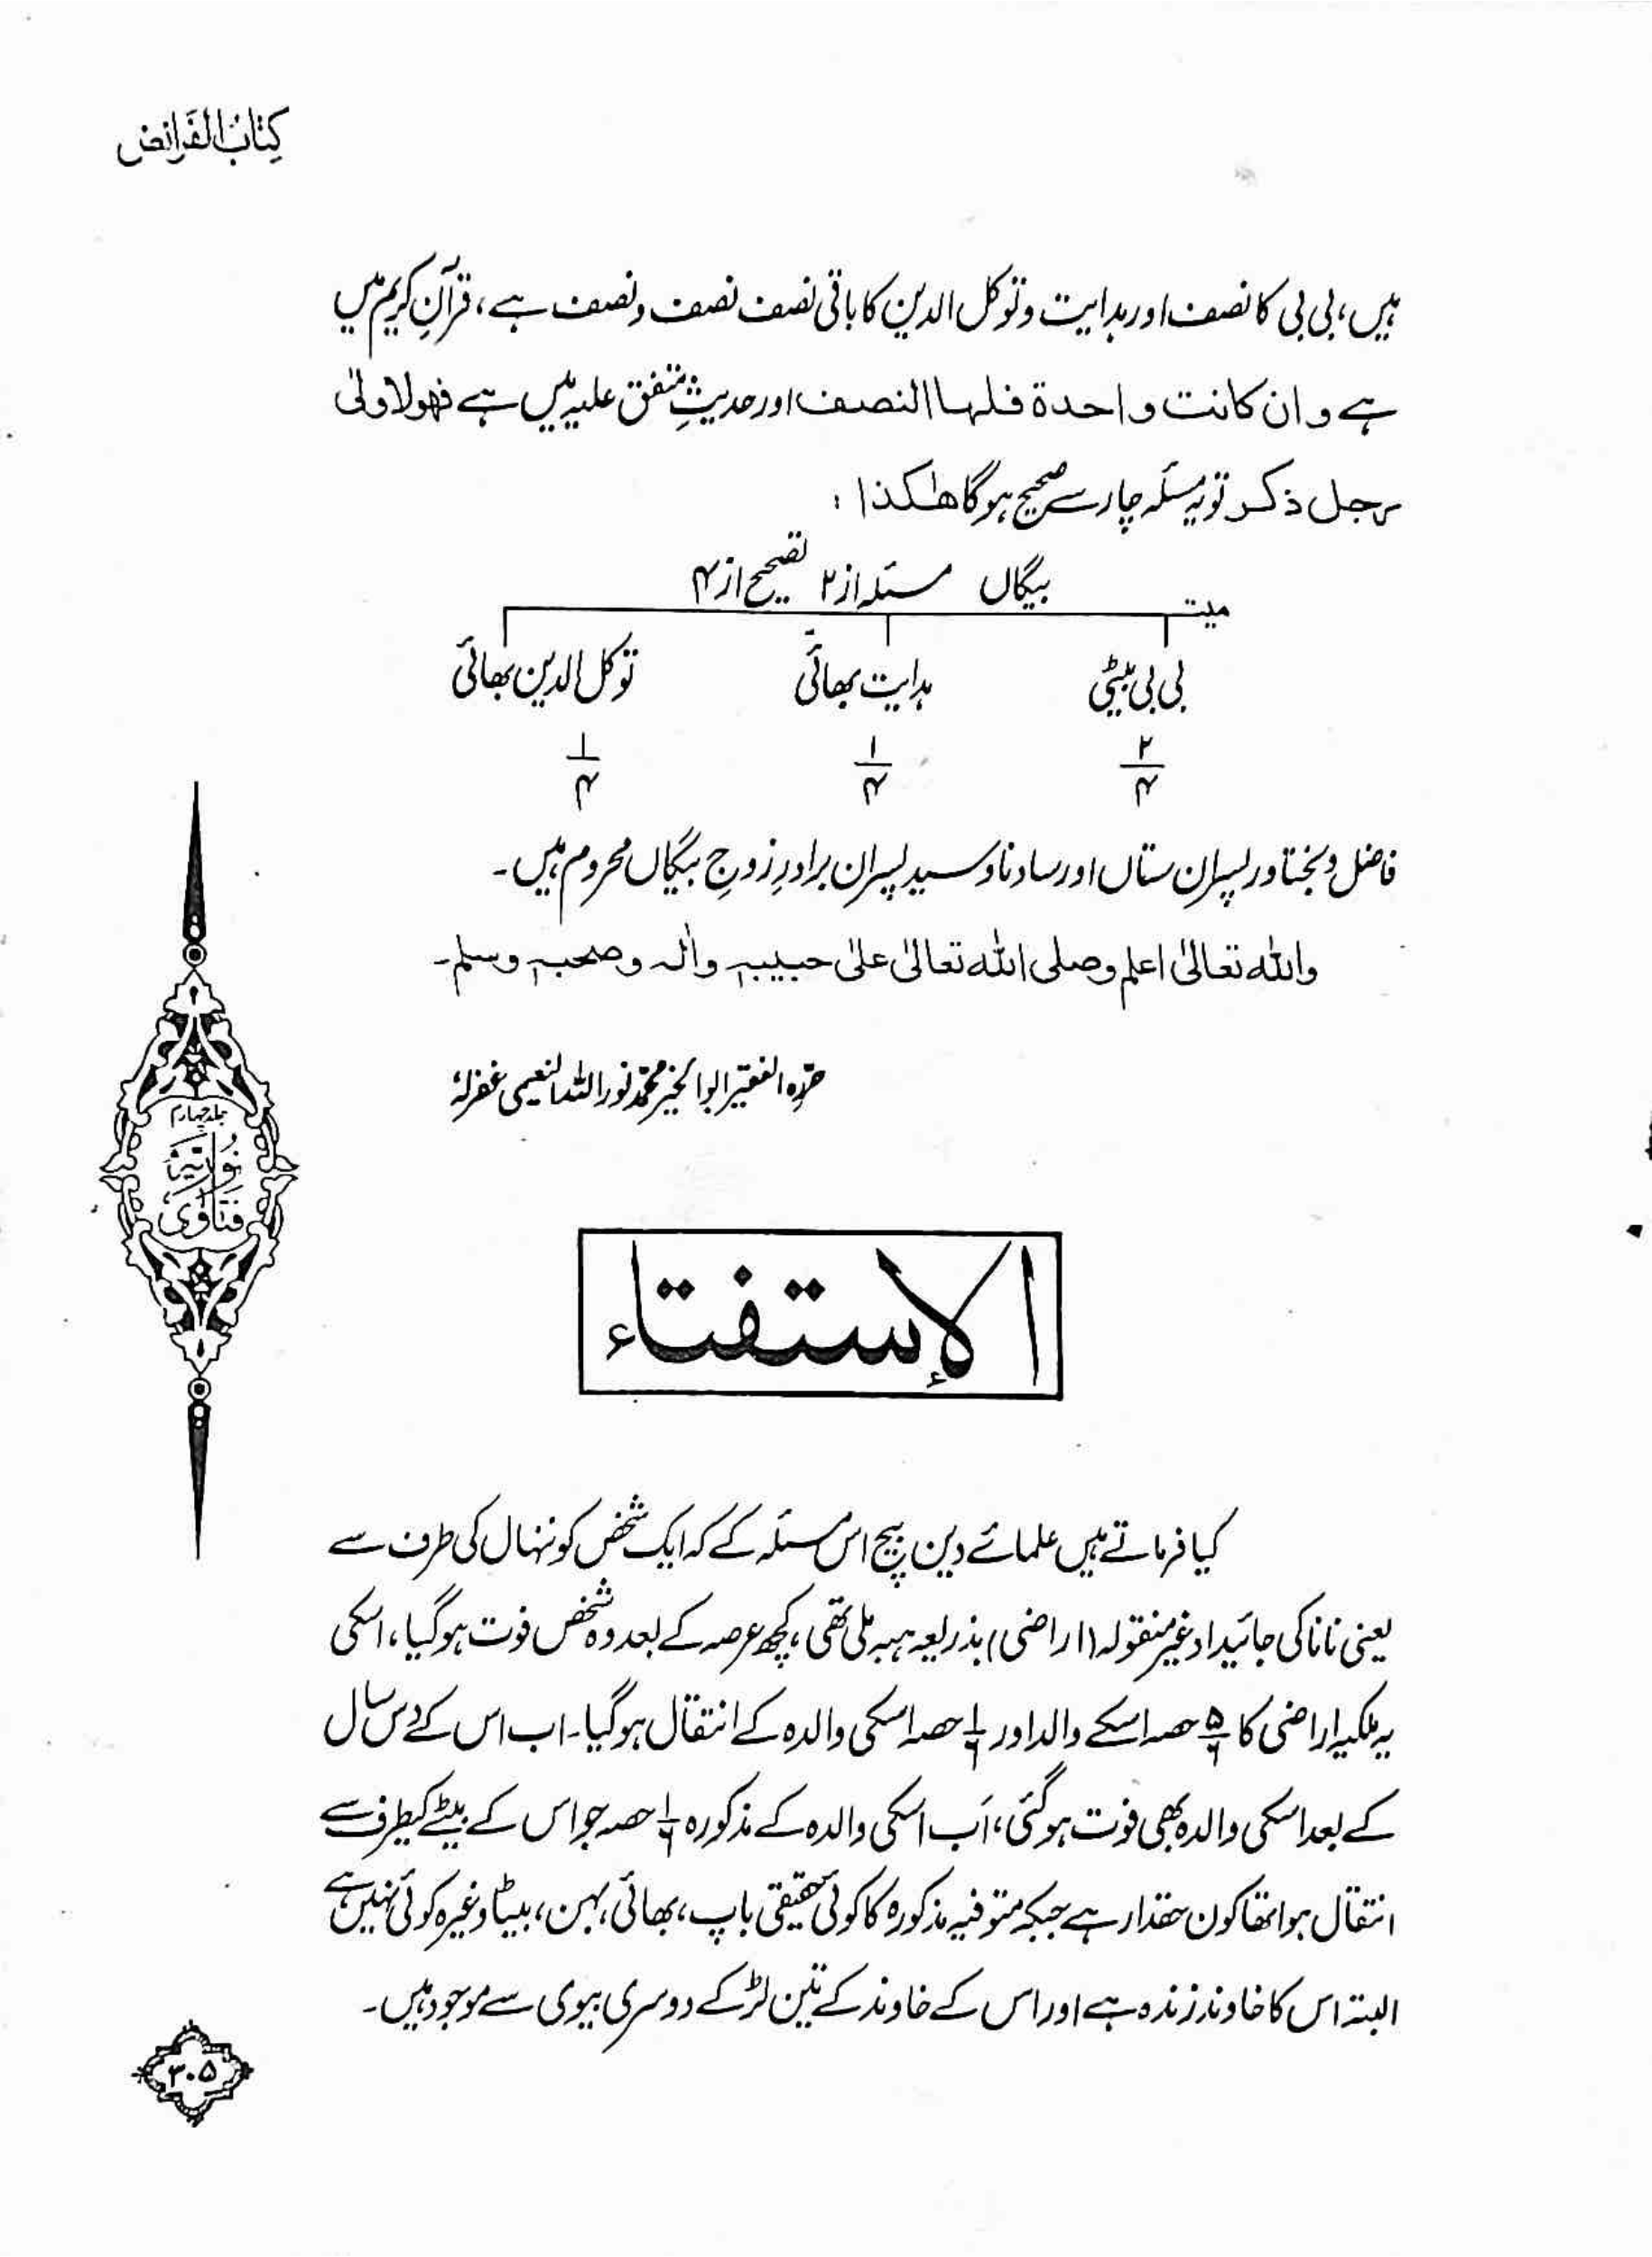 کتابُ الفَرائض
ہیں، بی بی کا نصف اور ہدایت و توکل الدین کا باقی نصف نصف و نصف ہے، قرآنِ کریم میں
ہے و ان کانت واحدة فلہا النصف اور حدیثِ متفق علیہ میں ہے فھو لاولیٰ
رجل ذکر تو یہ مسئلہ چار سے صحیح ہوگا ھٰکذا :
میت بیگاں مسئلہ از ۲ تصحیح از ۴
بی بی بیٹی ہدایت بھائی توکل الدین بھائی
۲/۴ ۱/۴ ۱/۴
فاضل و بختاور پسران ستاں اور سادنا و سید پسران برادرِ زوجِ بیگاں محروم ہیں۔
واللہ تعالیٰ اعلم وصلی اللہ تعالیٰ علیٰ حبیبہٖ واٰلہ وصحبہٖ وسلم۔
حرّرہ الفقیر ابوالخیر محمّد نور اللہ النعیمی غفرلہٗ
جلد چہارم
نُوریّہ
فتاوٰی
الإستفتاء
کیا فرماتے ہیں علمائے دین بیچ اس مسئلہ کے کہ ایک شخص کو ننہال کی طرف سے
یعنی نانا کی جائیداد غیر منقولہ (اراضی) بذریعہ ہبہ ملی تھی، کچھ عرصہ کے بعد وہ شخص فوت ہوگیا، اسکی
یہ ملکیہ اراضی کا ۵/۶ حصہ اسکے والد اور ۱/۶ حصہ اسکی والدہ کے انتقال ہوگیا۔ اب اس کے دس سال
کے بعد اسکی والدہ بھی فوت ہوگئی، اَب اسکی والدہ کے مذکورہ ۱/۶ حصہ جو اس کے بیٹے کیطرف سے
انتقال ہوا تھا کون حقدار ہے جبکہ متوفیہ مذکورہ کا کوئی حقیقی باپ، بھائی، بہن، بیٹا وغیرہ کوئی نہیں ہے
البتہ اس کا خاوند زندہ ہے اور اس کے خاوند کے تین لڑکے دوسری بیوی سے موجود ہیں۔
۳۰۵